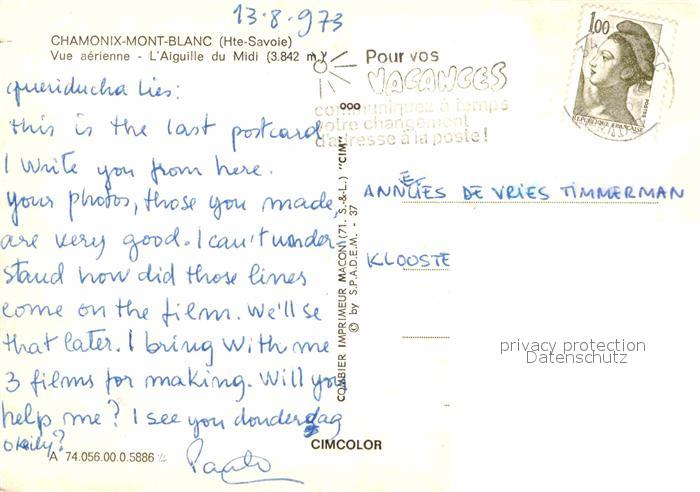 13-8-973
CHAMONIX-MONT-BLANC (Hte-Savoie)
Vue aérienne - L'Aiguille du Midi (3.842 m)
queriducha lies:
this is the last postcard
I write you from here.
Your photos, those you made,
are very good. I can't under
stand how did those lines
come on the film. We'll se
that later. I bring with me
3 films for making. Will you
help me? I see you donderdag
okily?
Paolo
A 74.056.00.0.5886
CIMCOLOR
COMBIER IMPRIMEUR MACON (71. S.-&-L.) "CIM"
© by S.P.A.D.E.M. - 37
Pour vos
VACANCES
communiquez à temps
votre changement
d'adresse à la poste!
1,00
POSTES
REPUBLIQUE FRANÇAISE
ANNELIES DE VRIES TIMMERMAN
KLOOSTE
privacy protection
Datenschutz